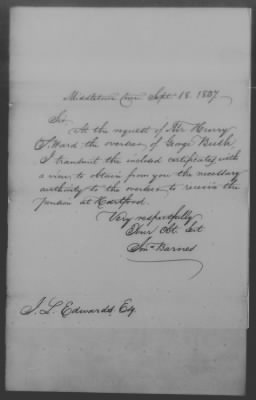 Middletown Conn Sept 18. 1837.
Sir
At the request of Mr Henry
S. Ward the overseer of George Bush
I transmit the inclosed certificates with
a view to obtain from you the necessary
authority to the overseer to receive the
pension at Hartford.
Very respectfully
Your Obt Svt
Jnº Barnes
J. L. Edwards Esq.